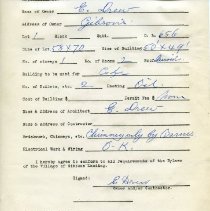 Name of Owner E. Drew
Address of Owner Gibsons
Lot 1 Block Subd. D. L. 686
Size of Lot 58 x 70 Size of Building 50' x 49'
No. of storeys 1 No. of Rooms 2
Building to be used for
No. of Outlets, etc. 2 Heating Oil
Cost of Building $ Permit Fee $ None
Name & Address of Architect E. Drew
Name & Address of Contractor
Brickwork, Chimneys, etc. Chimney only by
Electrical Work & Wiring O-K.
I hereby agree to conform to all requirements of the Bylaws
of the Village of Gibsons Landing.
Signed: E Drew
Owner and/or Contractor.